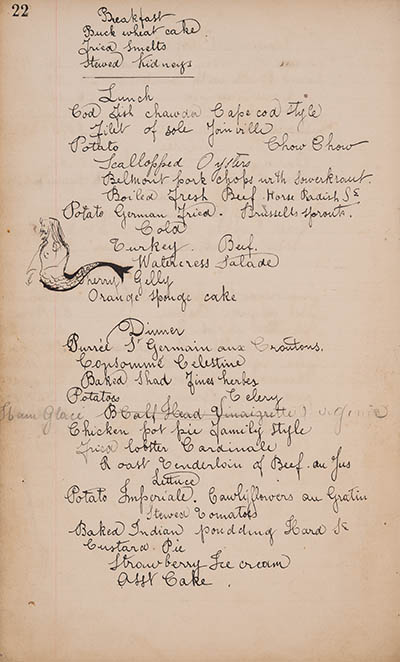 22
Breakfast
Buck wheat cake
Fried Smelts
Stewed Kidneys
Lunch
Cod Fish chawder Cape cod style
Filet of sole Joinville
Potato Chow Chow
Scallopped Oysters
Belmont pork chops with Sowerkraut.
Boiled Fresh Beef. Horse Radish Sc
Potato German Fried. Brussells sprouts.
Cold
Turkey. Beef.
Watercress Salade
Sherry Gelly
Orange sponge cake
Dinner
Purreé St Germain aux Croutons.
Consommé Celestine
Baked Shad Fines herbes
Potatoes Celery
Ham Glacé Calf Head Vinaigrette
Chicken pot pie Family style
Fried lobster Cardinale
Roast Tenderloin of Beef. au Jus
Lettuce
Potato Imperiale. Cawliflowers au Gratin
Stewed Tomatoes
Baked Indian poudding Hard Sc
Custard Pie
Strawberry Ice cream
Asst Cake.